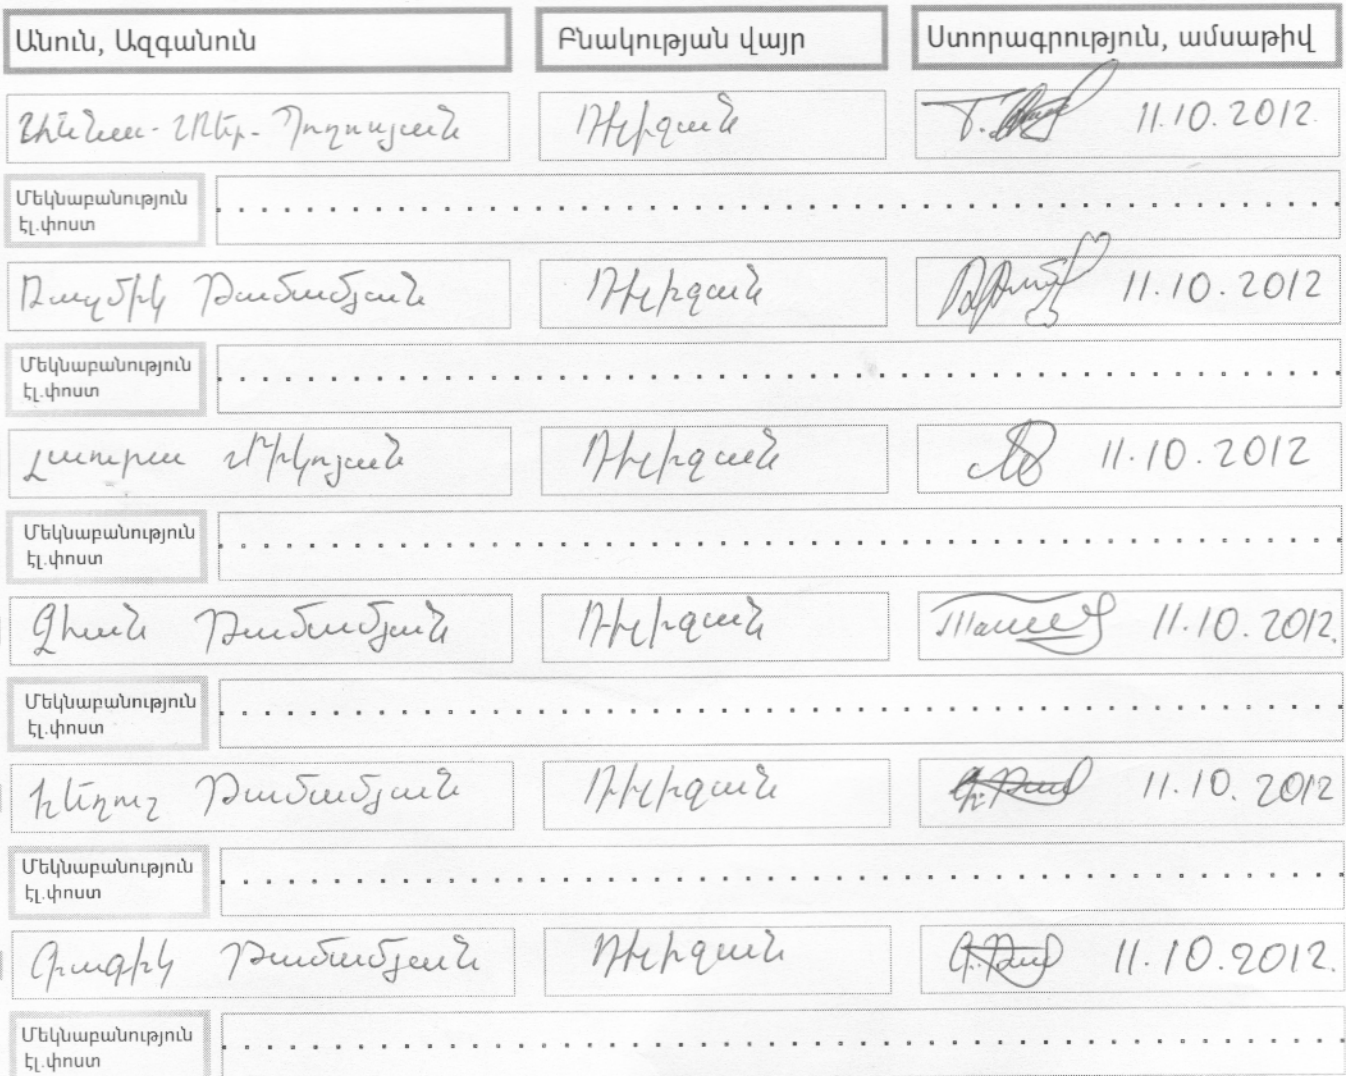 Անուն, Ազգանուն Բնակության վայր Ստորագրություն, ամսաթիվ
Տեր-Պողոսյան Դիլիջան 11.10.2012.
Մեկնաբանություն
էլ.փոստ
Ռազմիկ Թամամյան Դիլիջան 11.10.2012
Մեկնաբանություն
էլ.փոստ
Լաուրա Միկոյան Դիլիջան 11.10.2012
Մեկնաբանություն
էլ.փոստ
Թամամյան Դիլիջան 11.10.2012.
Մեկնաբանություն
էլ.փոստ
Թամամյան Դիլիջան 11.10.2012
Մեկնաբանություն
էլ.փոստ
Գագիկ Թամամյան Դիլիջան 11.10.2012.
Մեկնաբանություն
էլ.փոստ